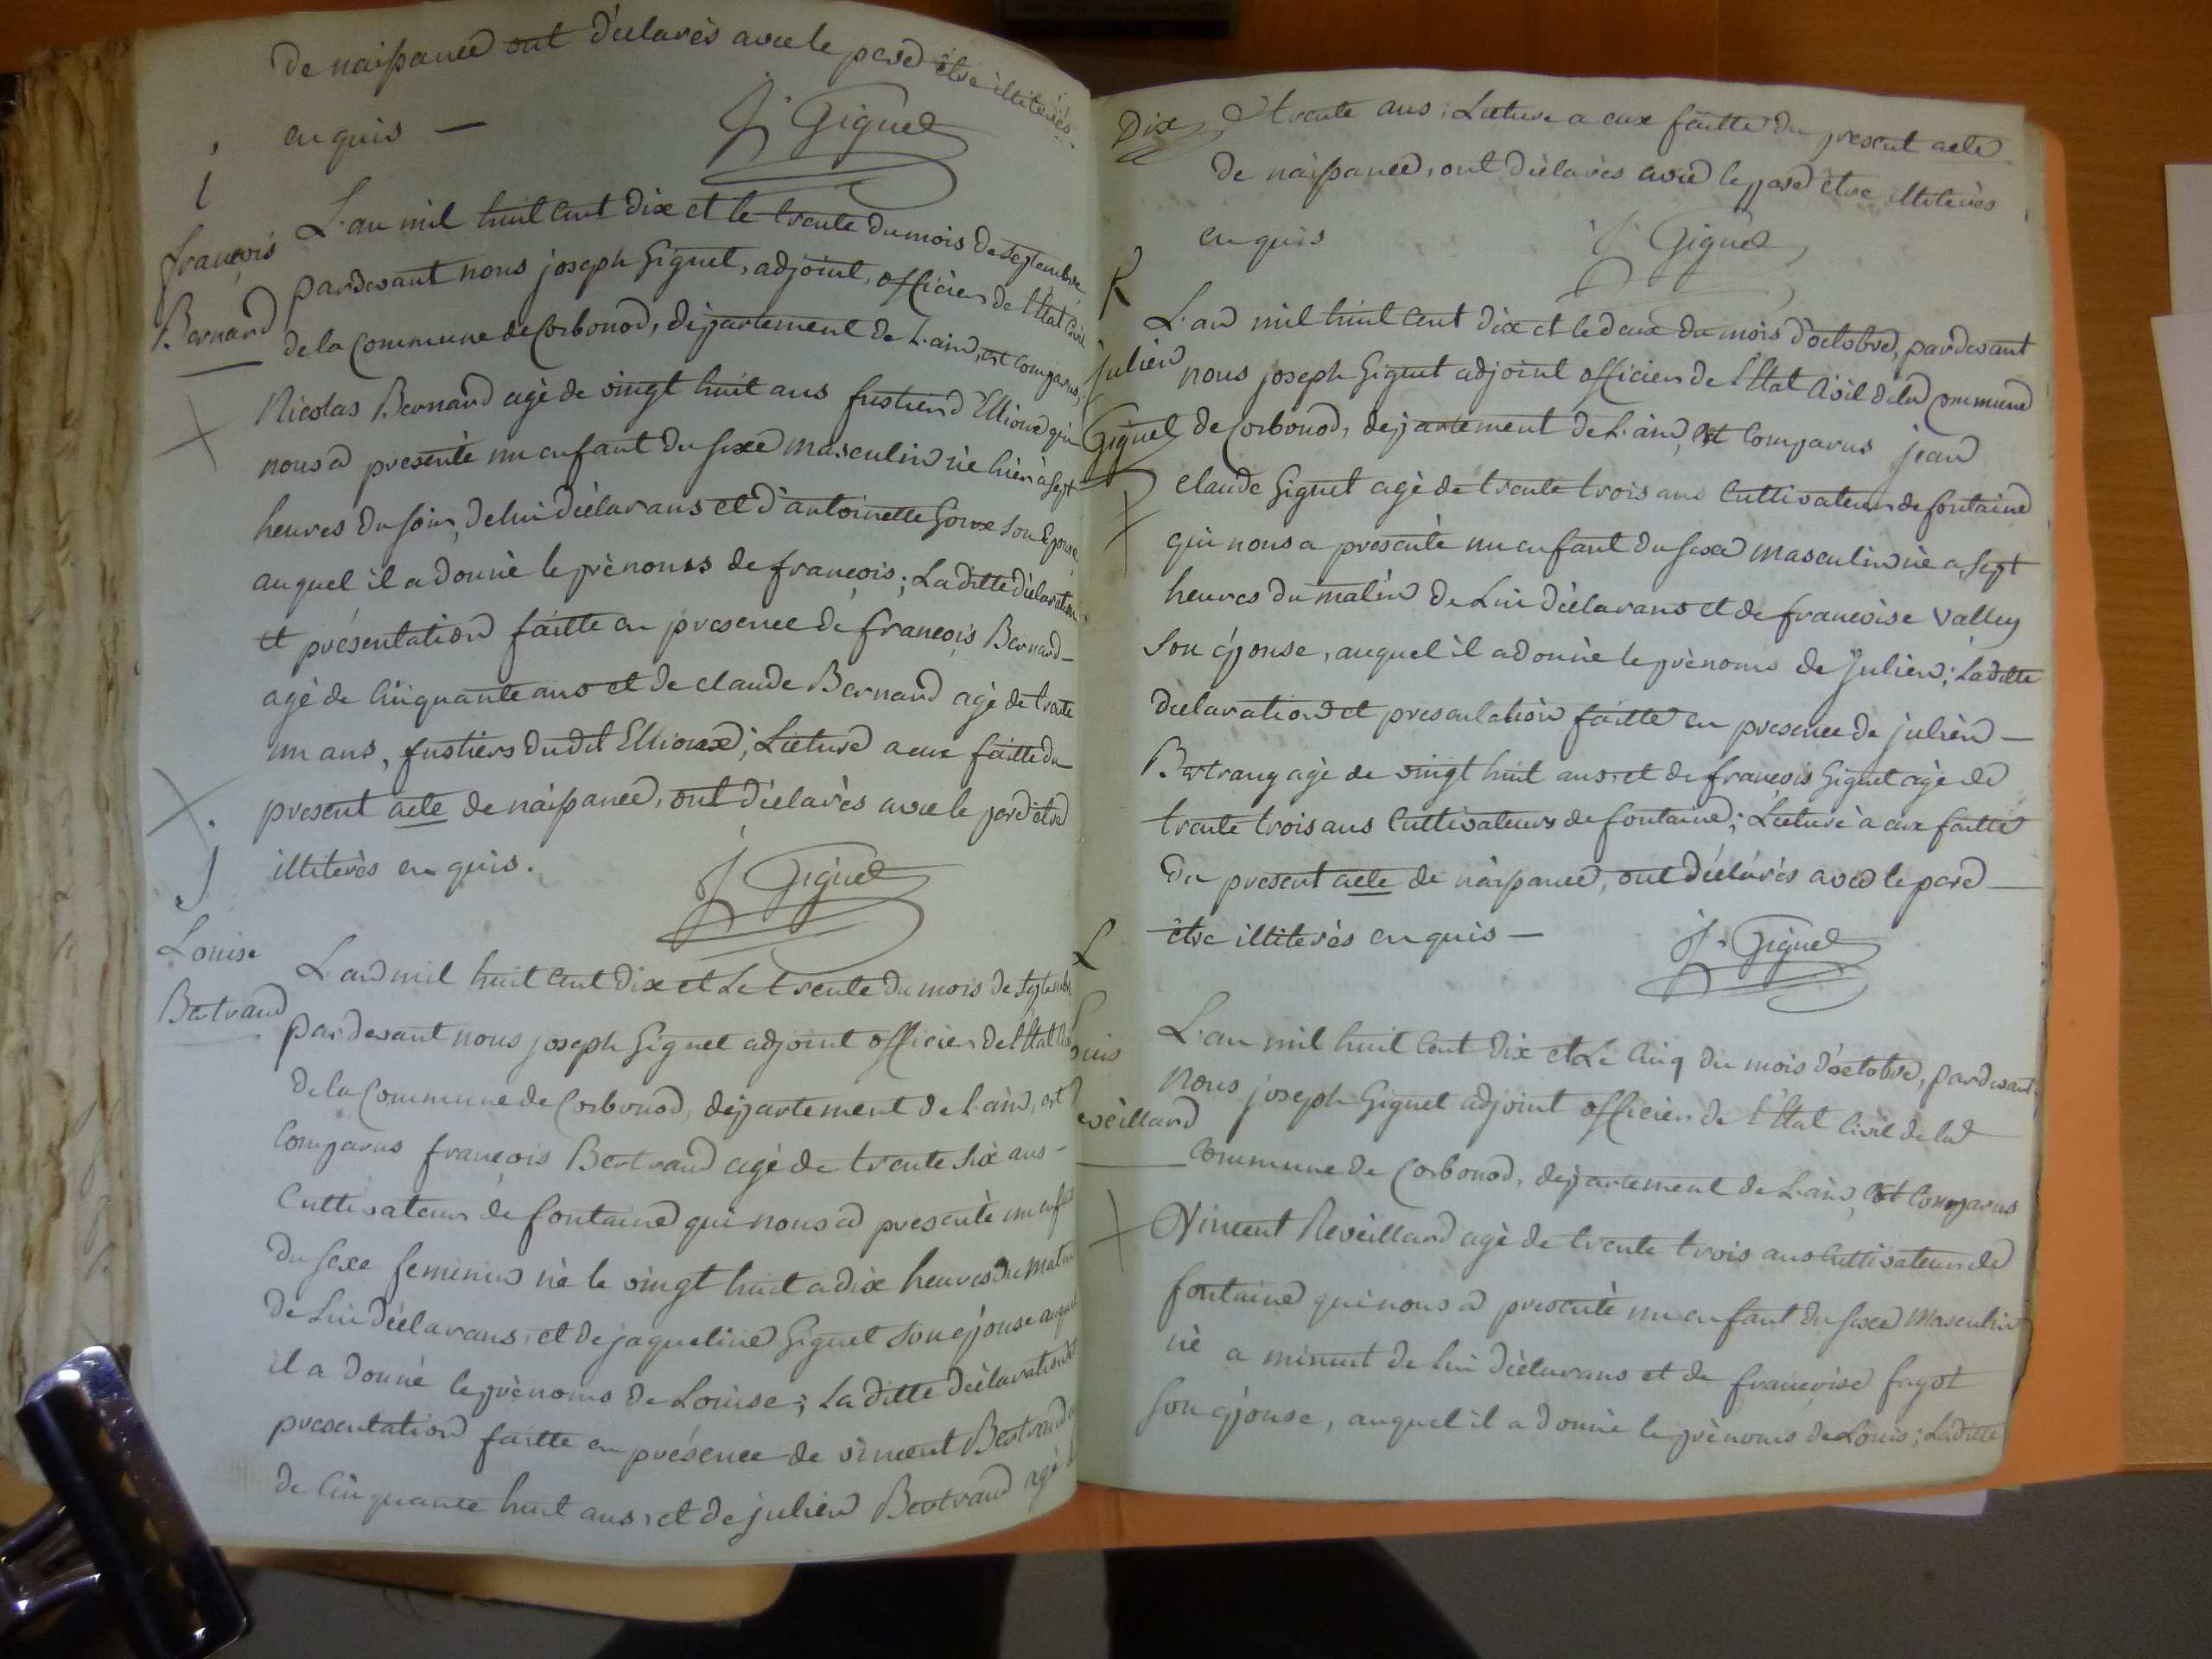 de naissance ont déclarés avec le pere être illiterés
enquis —
J. Giguet
i
françois
Bernard
L'an mil huit cent dix et le trente du mois de septembre
pardevant nous joseph Giguet, adjoint, officier de l'Etat Civil
de la Commune de Corbonod, département de L'ain, est comparus,
Nicolas Bernard agé de vingt huit ans fustier d'Ellioux qui
nous a presenté un enfant du sexe masculin né hier à sept
heures du soir, de lui déclarans et d'antoinette Goux son Epouse
auquel il a donné le prénoms de françois; La ditte déclaration
et présentation faitte en presence de françois Bernard —
agé de cinquante ans et de claude Bernard agé de trente
un ans, fustiers dudit Ellioux; Lecture a eux faitte du
present acte de naissance, ont déclarés avec le pere être
illiterés enquis.
J. Giguet
j
Louise
Bertrand
L'an mil huit cent dix et Le trente du mois de septembre
pardevant nous joseph Giguet adjoint officier de l'Etat Civil
de la Commune de Corbonod, département de L'ain, est
Comparus françois Bertrand agé de trente six ans -
Cultivateur de fontaine qui nous a presenté un enfant
du sexe feminin né le vingt huit a dix heures du matin
de Lui déclarans, et de jaqueline Giguet son épouse auquel
il a donné le prénoms de Louise; La ditte déclaration et
presentation faitte en présence de vincent Bertrand
de cinquante huit ans, et de julien Bertrand agé de
Dix
trente ans; Lecture a eux faitte du present acte
de naissance, ont déclarés avec le pere être illiterés
enquis
J. Giguet
K
julien
Giguet
L'an mil huit cent dix et le deux du mois d'octobre, pardevant
nous joseph Giguet adjoint officier de l'Etat Civil de la commune
de Corbonod, département de L'ain, est comparus jean
claude Giguet agé de trente trois ans Cultivateur de fontaine
qui nous a presenté un enfant du sexe masculin né a sept
heures du matin de Lui déclarans et de françoise Valley
son épouse, auquel il a donné le prénoms de julien; La ditte
déclaration et presentation faitte en presence de julien —
Bertrang agé de vingt huit ans, et de françois Giguet agé de
trente trois ans Cultivateurs de fontaine; Lecture à eux faitte
du present acte de naissance, ont déclarés avec le pere —
être illiterés enquis —
J. Giguet
L
Louis
Reveillard
L'an mil huit cent dix et Le cinq du mois d'octobre, pardevant
Nous joseph Giguet adjoint officier de l'Etat Civil de la
Commune de Corbonod, département de L'ain, est comparus
Vincent Reveillard agé de trente trois ans Cultivateur de
fontaine qui nous a presenté un enfant du sexe masculin
né a minuit de lui déclarans et de françoise fagot
son épouse, auquel il a donné le prénoms de Louis; La ditte